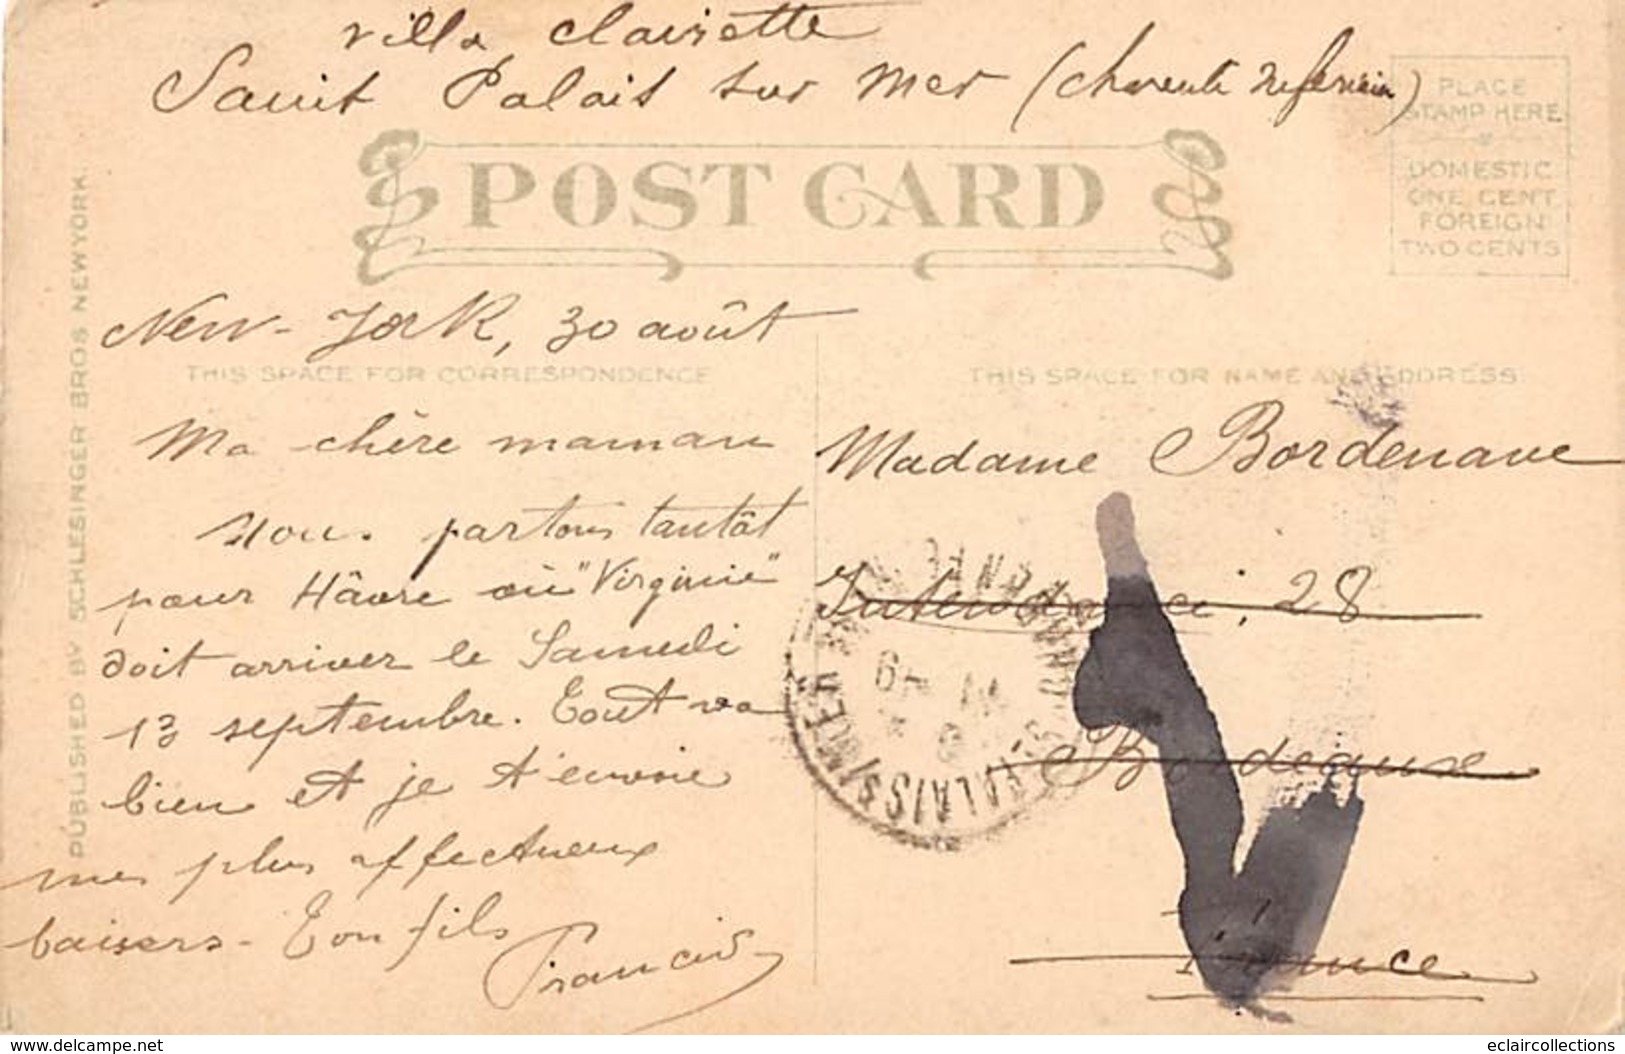 Villa Clairette
Saint Palais sur Mer (Charente Inférieure)
PLACE
STAMP HERE
DOMESTIC
ONE CENT
FOREIGN
TWO CENTS
POST CARD
PUBLISHED BY SCHLESINGER BROS NEW YORK.
New-York, 30 août
THIS SPACE FOR CORRESPONDENCE
Ma chère maman
Nous partons tantôt
pour Hâvre où "Virginie"
doit arriver le Samedi
13 septembre. Tout va
bien et je t'envoie
mes plus affectueux
baisers - Ton fils
Francis
THIS SPACE FOR NAME AND ADDRESS
Madame Bordenave
Intendance, 28
Bordeaux
France
www.delcampe.net
eclaircollections